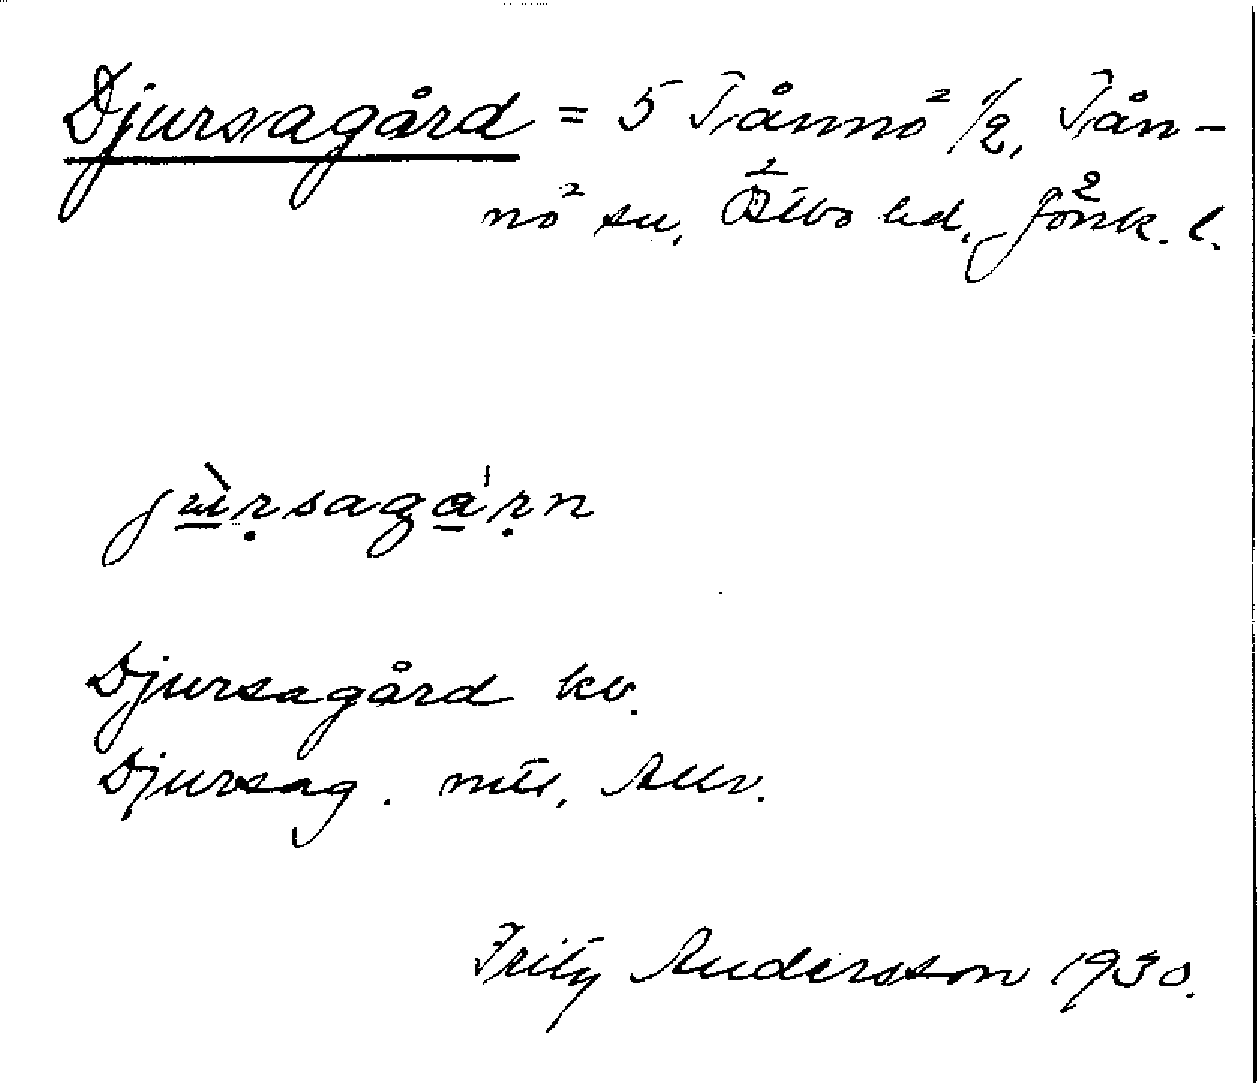 Djursagård = 5 Tånnö 1/2, Tån-
nö sn, Östbo hd, Jönk. l.
jùrsaga'rn
Djursagård kv.
Djursag. mtl, Allm.
Fritz Andersson 1930.